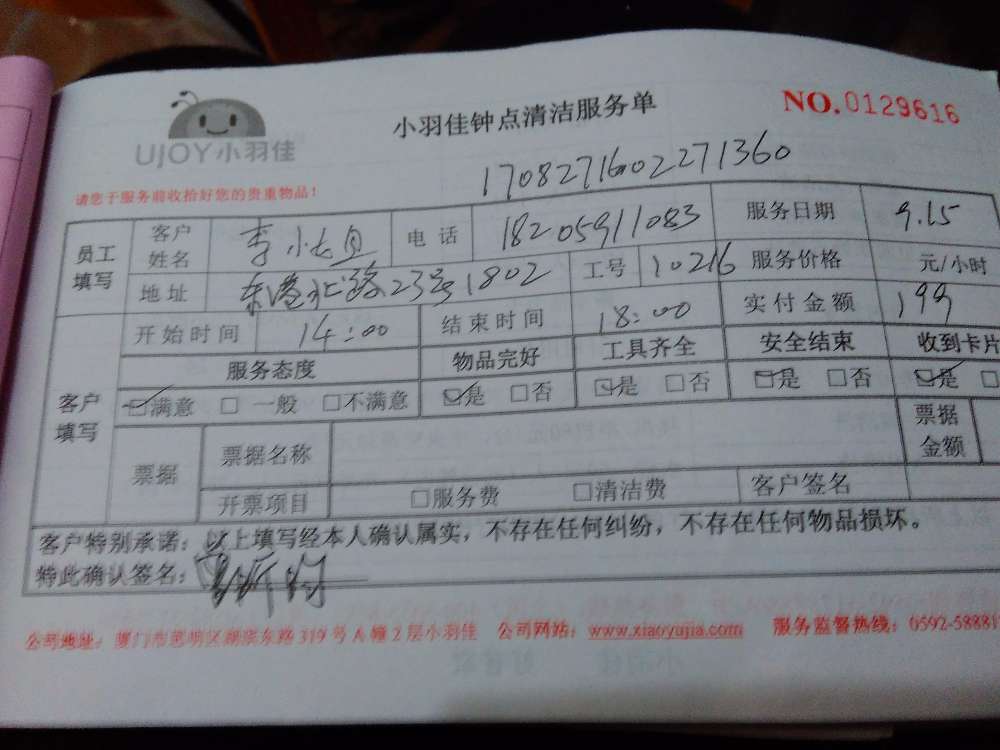 UJOY小羽佳
小羽佳钟点清洁服务单
NO.0129616
1708271602271360
请您于服务前收拾好您的贵重物品！
员工填写 客户姓名 李小 电话 18205911083 服务日期 9.15
地址 东港北路23号1802 工号 10216 服务价格 元/小时
客户填写 开始时间 14:00 结束时间 18:00 实付金额 199
服务态度 物品完好 工具齐全 安全结束 收到卡片
☑满意 □一般 □不满意 ☑是 □否 ☑是 □否 ☑是 □否 ☑是 □
票据 票据名称 票据金额
开票项目 □服务费 □清洁费 客户签名
客户特别承诺：以上填写经本人确认属实，不存在任何纠纷，不存在任何物品损坏。
特此确认签名：
公司地址：厦门市思明区湖滨东路319号A幢2层小羽佳 公司网站：www.xiaoyujia.com 服务监督热线：0592-58881